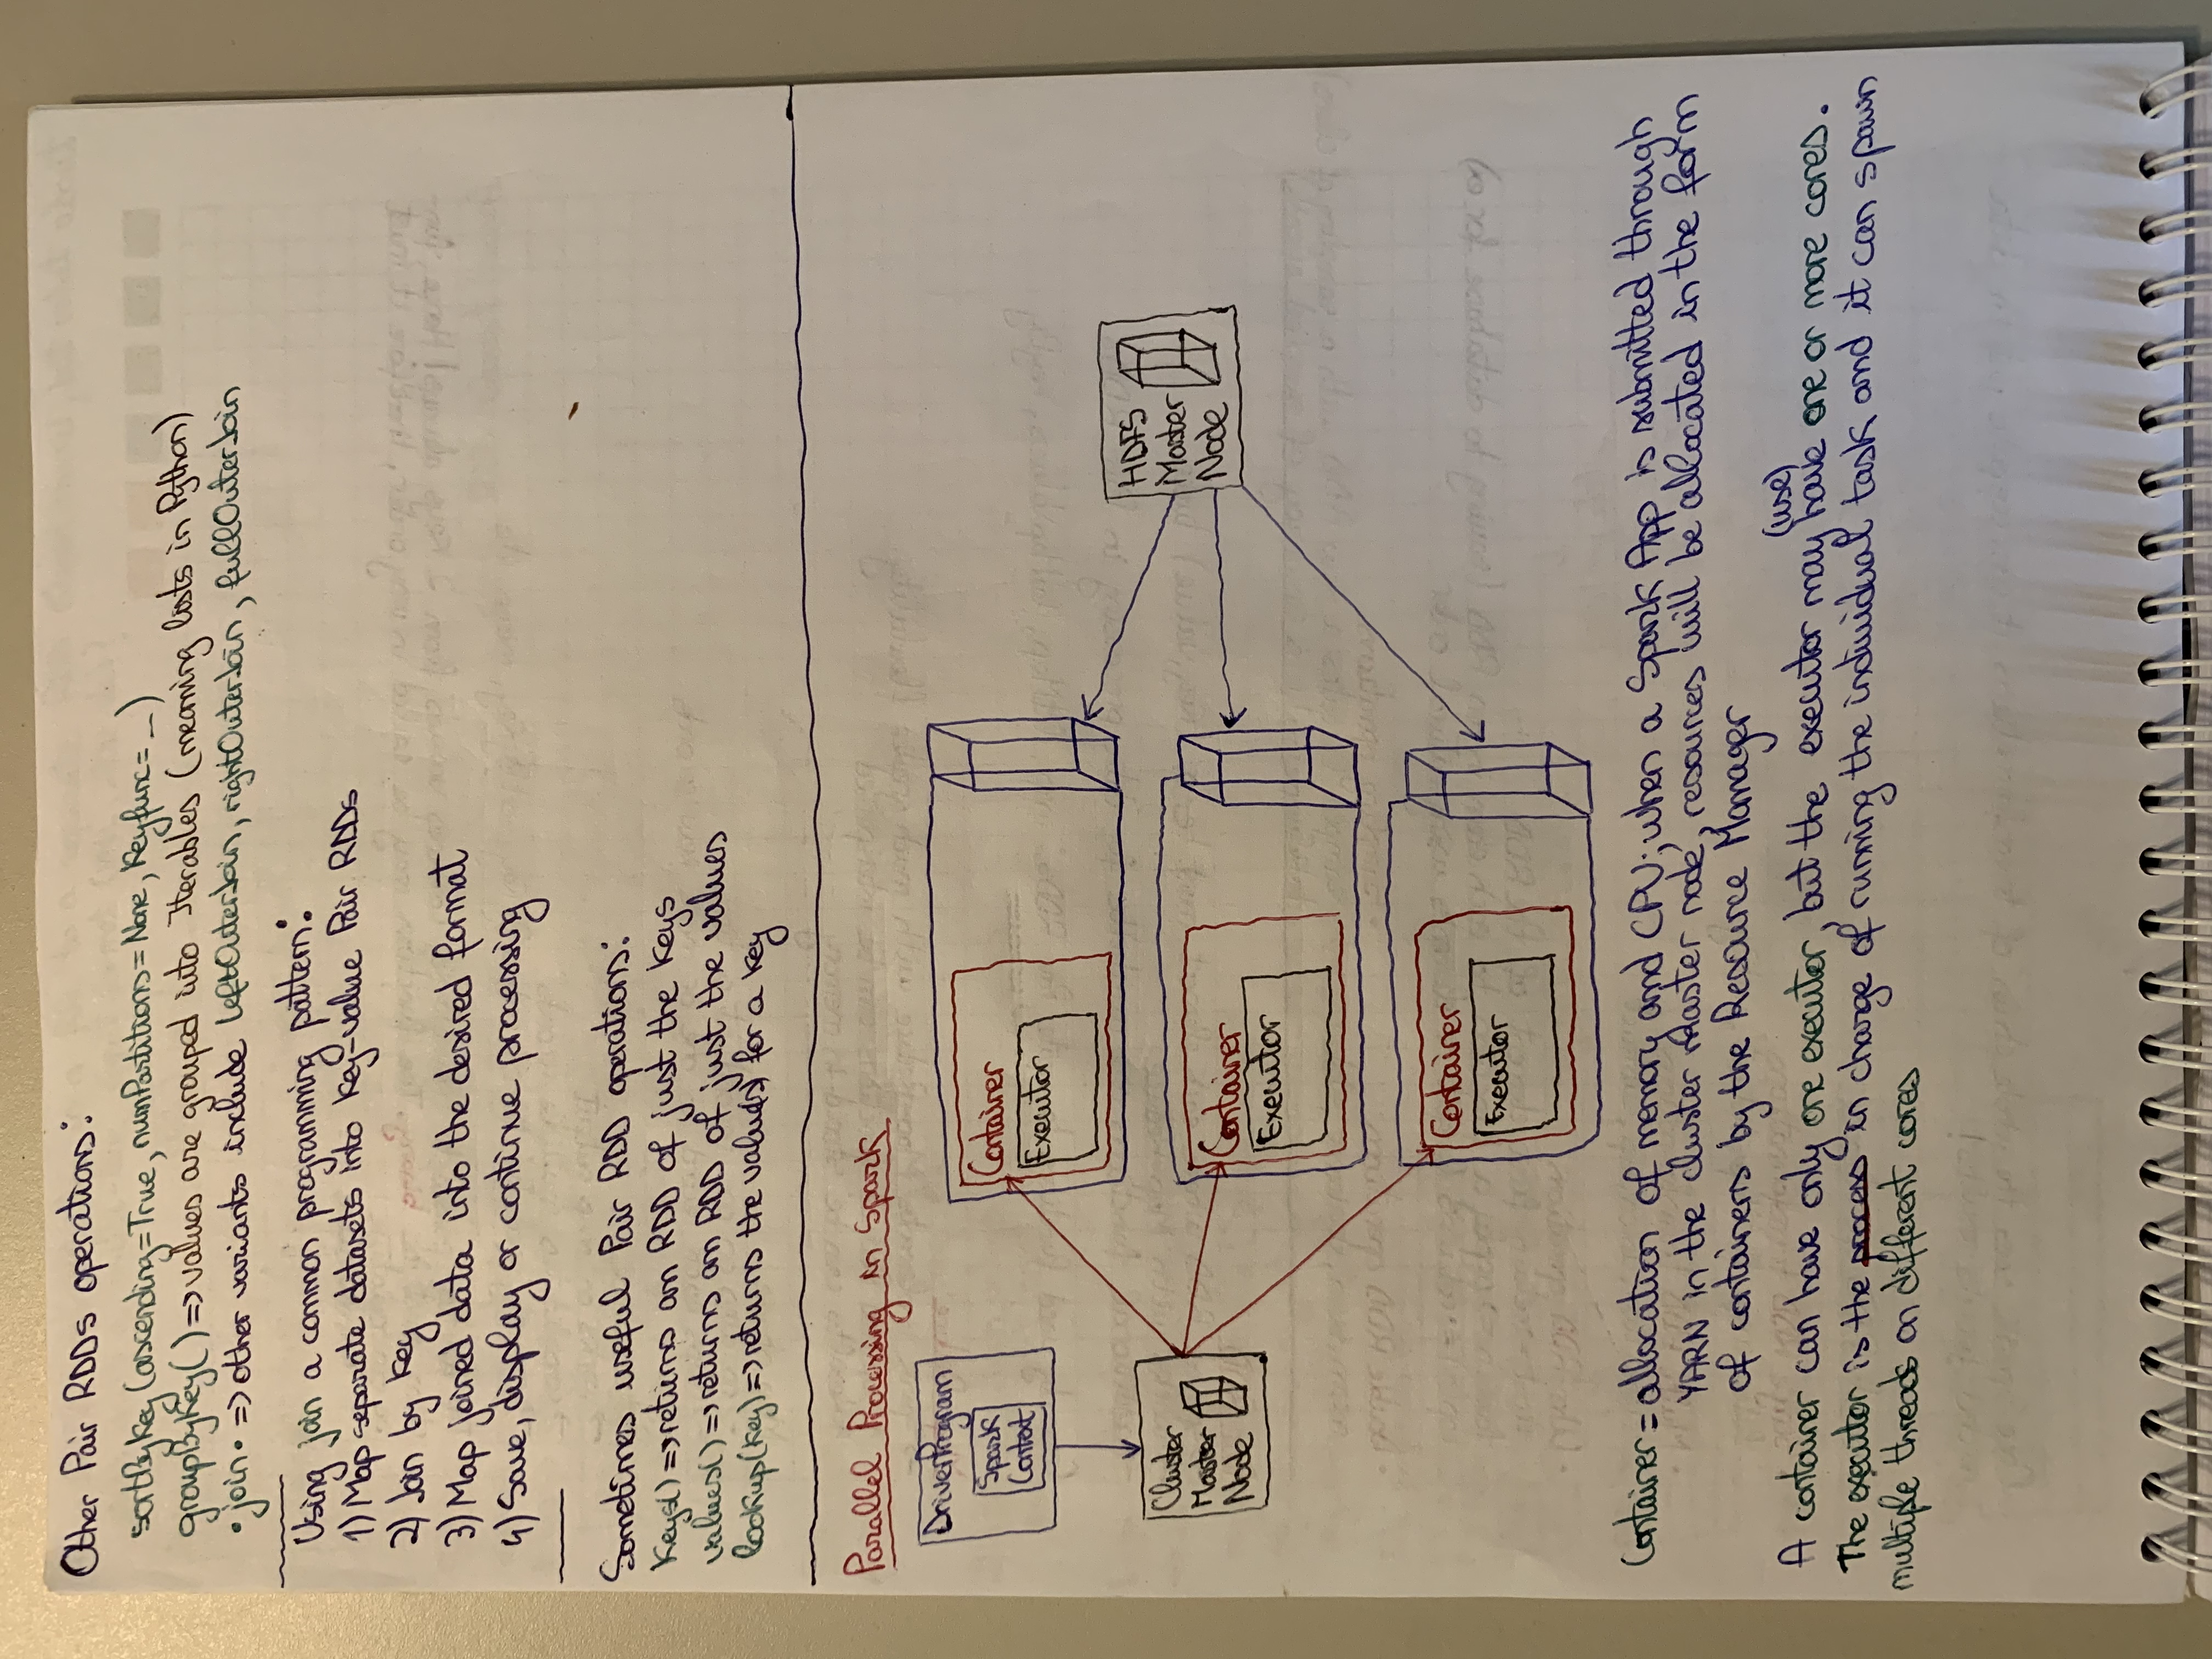 Other Pair RDDs operations:
sortByKey(ascending=True, numPartitions=None, Keyfunc=_)
groupByKey() => values are grouped into Iterables (meaning lists in Python)
• join • => other variants include leftOuterJoin, rightOuterJoin, fullOuterJoin
Using join a common programming pattern:
1) Map separate datasets into Key-value Pair RDDs
2) Join by Key
3) Map joined data into the desired format
4) Save, display or continue processing
Sometimes useful Pair RDD operations:
Keys() => returns an RDD of just the Keys
values() => returns an RDD of just the values
lookup(Key) => returns the value(s) for a Key
Parallel Processing in Spark
DriverProgram
Spark
Context
Cluster
Master
Node
Container
Executor
Container
Executor
Container
Executor
HDFS
Master
Node
Container = allocation of memory and CPU; when a Spark App is submitted through
YARN in the cluster master node, resources will be allocated in the form
of containers by the Resource Manager
(use)
A container can have only one executor, but the executor may have one or more cores.
The executor is the process in charge of running the individual task and it can spawn
multiple threads on different cores